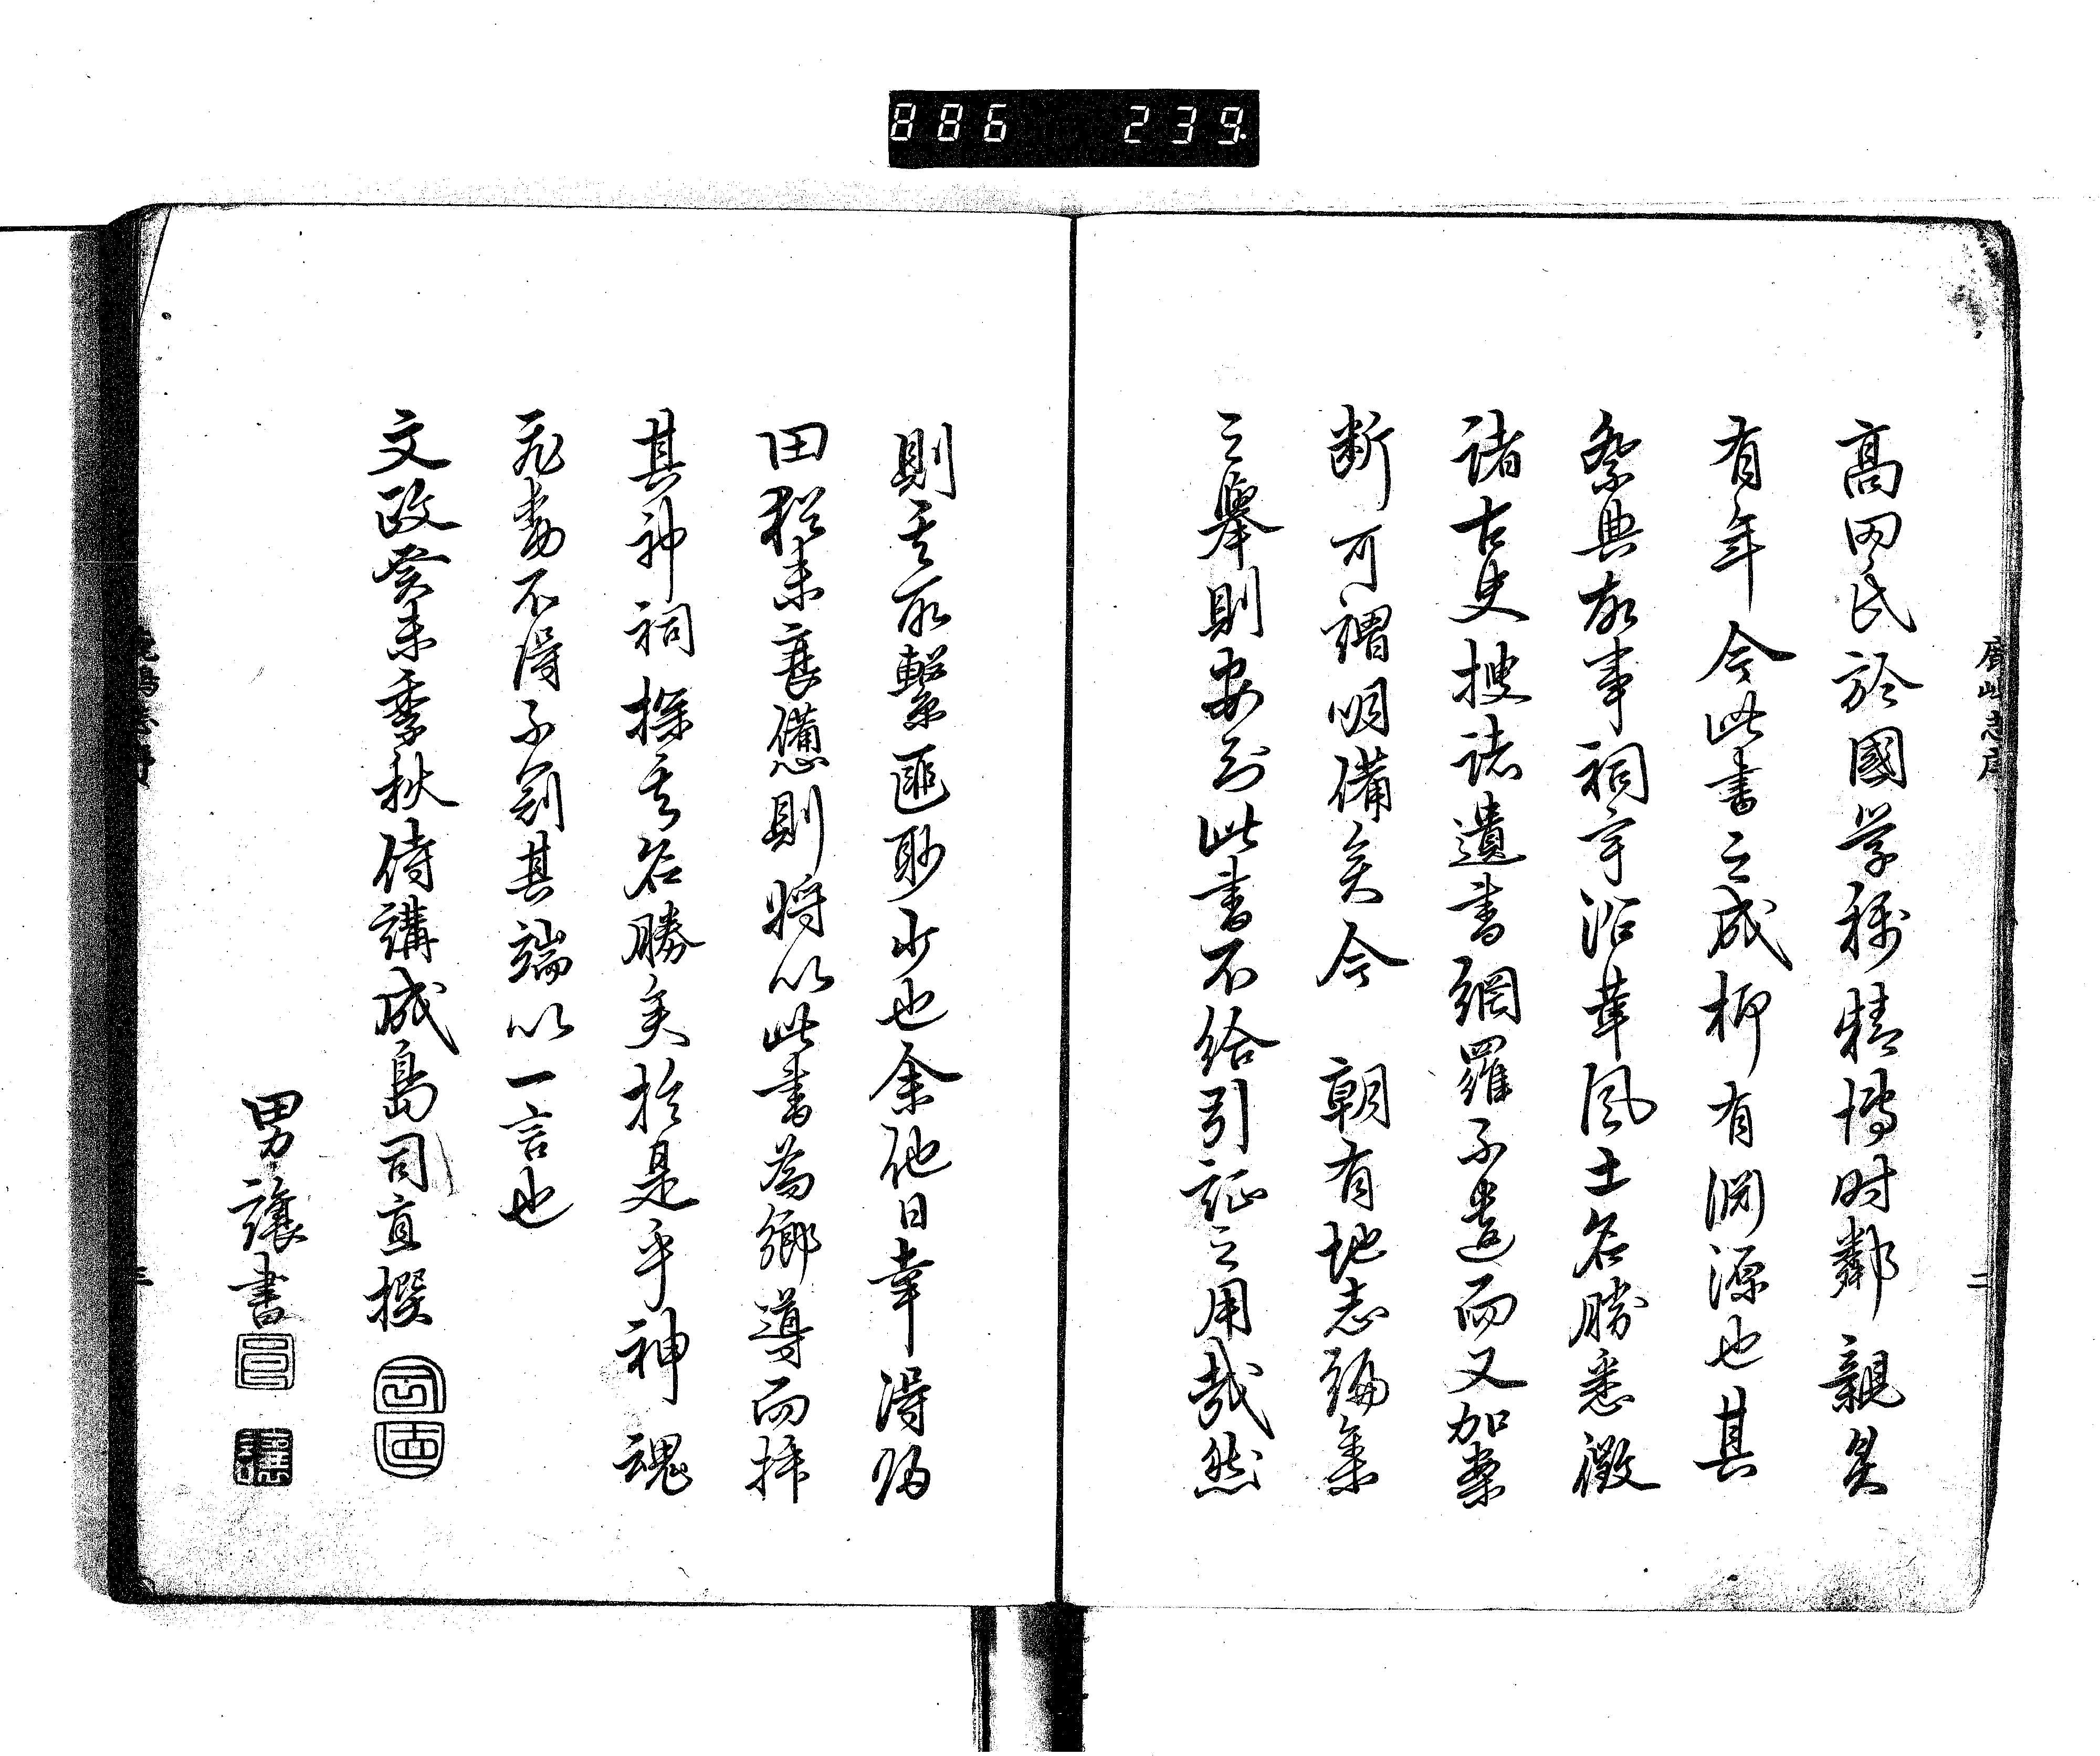 鹿島志序 二
高田氏於國学称精博时鄰親炙
有年今此書之成抑有淵源也其
祭典故事祠宇沿革風土名勝悉徴
諸古史捜諸遺書網羅不遺而又加案
断可謂明備矣今 朝有地志編集
之舉則安知此書不給引証之用哉然
則其所繋匪眇少也余他日幸得歸
田猶未衰憊則將以此書為郷導而拝
其神祠探其名勝矣於是乎神魂
飛動不得不剳其端以一言也
文政癸未季秋侍講成島司直撰
司直
男讓書
鹿島志序 三
886 239